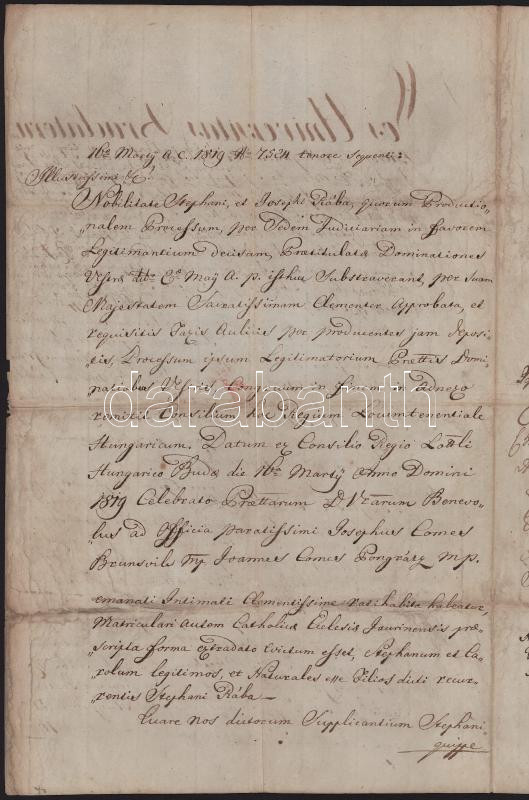 16ta Martÿ A. C. 1819 No 7524 tenore sequenti:
Illustrissime &c.
Nobilitate Stephani, et Josephi Rába, quorum Productio-
nalem Processum, per Sedem Judiciariam in favorem
Legitimantium decisam, Prætitulatæ Dominationes
Vestræ dtto Maÿ A. p. isthuc Substraverant, per suam
Majestatem Sacratissimam Clementer Approbata, et
requisitis Taxis Aulicis per producentes jam deposi-
tis, Processum ipsum Legitimatorium Prættis Domi-
nationibus Vestris, Congruum in finem in adnexo
remittit Consilium hoc Regium Locumtenentiale
Hungaricum. Datum ex Consilio Regio Lottli
Hungarico Budæ die 16ta Martÿ Anno Domini
1819 Celebrato Prættarum D. Vrarum Benevo-
lus ad Officia paratissimi Josephus Comes
Brunsvik mp Joannes Comes Pongrátz mp.
emanati Intimati Clementissime ratihabita haleatur,
Matriculari Autem Catholicæ Eclesiæ Jaurinensis præ-
scripta forma extradato evictum esset, Stephanum et Ca-
rolum legitimos, et Naturales esse Filios dicti recur-
rentis Stephani Rába —
Quare nos dictorum Supplicantium Stephani
quippe
darabanth